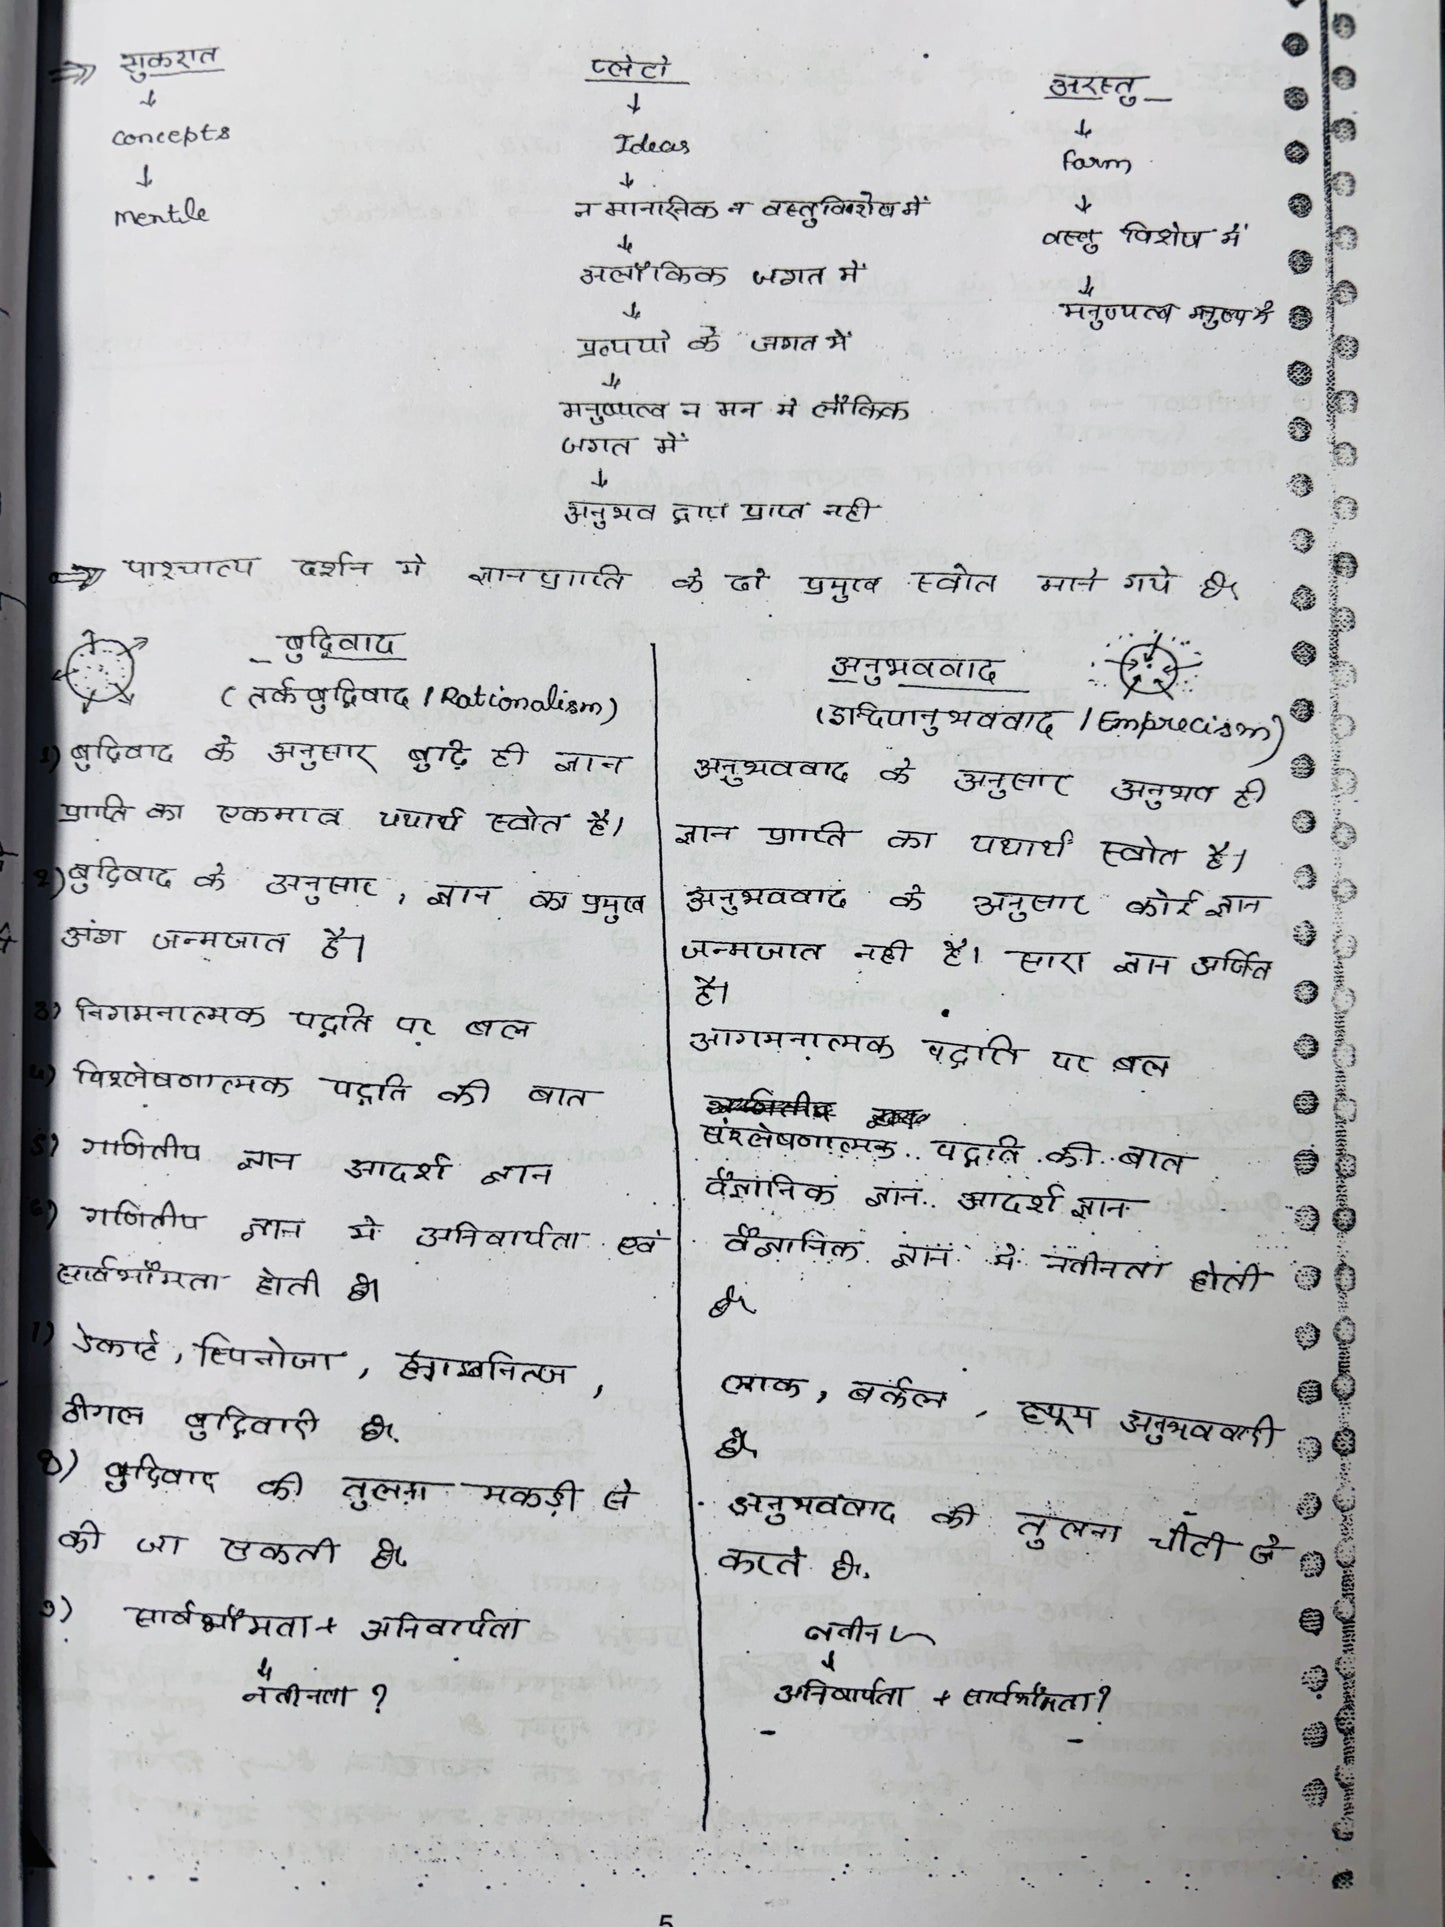 सुकरात
↓
concepts
↓
mentile
प्लेटो
↓
Ideas
↓
न मानसिक न वस्तुविशेष में
↓
अलौकिक जगत में
↓
प्रत्ययो के जगत में
↓
मनुष्यत्व न मन मे लौकिक
जगत में
↓
अनुभव द्वारा प्राप्त नही
अरस्तु
↓
farm
↓
वस्तु विशेष में
↓
मनुष्यत्व मनुष्य में
⇒ पाश्चात्य दर्शन मे ज्ञानप्राप्ति के दो प्रमुख स्त्रोत माने गये है।
बुद्विवाद
(तर्कबुद्विवाद / Rationalism)
1) बुद्विवाद के अनुसार बुद्वि ही ज्ञान
प्राप्ति का एकमात्र यथार्थ स्त्रोत है।
2) बुद्विवाद के अनुसार, ज्ञान का प्रमुख
अंश जन्मजात है।
3) निगमनात्मक पद्वति पर बल
4) विश्लेषणात्मक पद्वति की बात
5) गाणितीय ज्ञान आदर्श ज्ञान
6) गणितीय ज्ञान मे अनिवार्यता एवं
सार्वभौमता होती है।
7) डेकार्ट, स्पिनोजा,
हीगल बुद्विवादी है।
8) बुद्विवाद की तुलना मकड़ी से
की जा सकती है।
9) सार्वभौमता + अनिवार्यता
↓
नवीनता ?
अनुभववाद
(इन्द्रियानुभववाद / Emprecism)
अनुभववाद के अनुसार अनुभव ही
ज्ञान प्राप्ति का यथार्थ स्त्रोत है।
अनुभववाद के अनुसार कोई ज्ञान
जन्मजात नही है। सारा ज्ञान अर्जित
है।
आगमनात्मक पद्वति पर बल
संश्लेषणात्मक पद्वति की बात
वैज्ञानिक ज्ञान आदर्श ज्ञान
वैज्ञानिक ज्ञान में नवीनता होती
है।
लाक, बर्कले, ह्यूम अनुभववादी
है।
अनुभववाद की तुलना चींटी से
करते है।
↓
अनिवार्यता + सार्वभौमता?
5